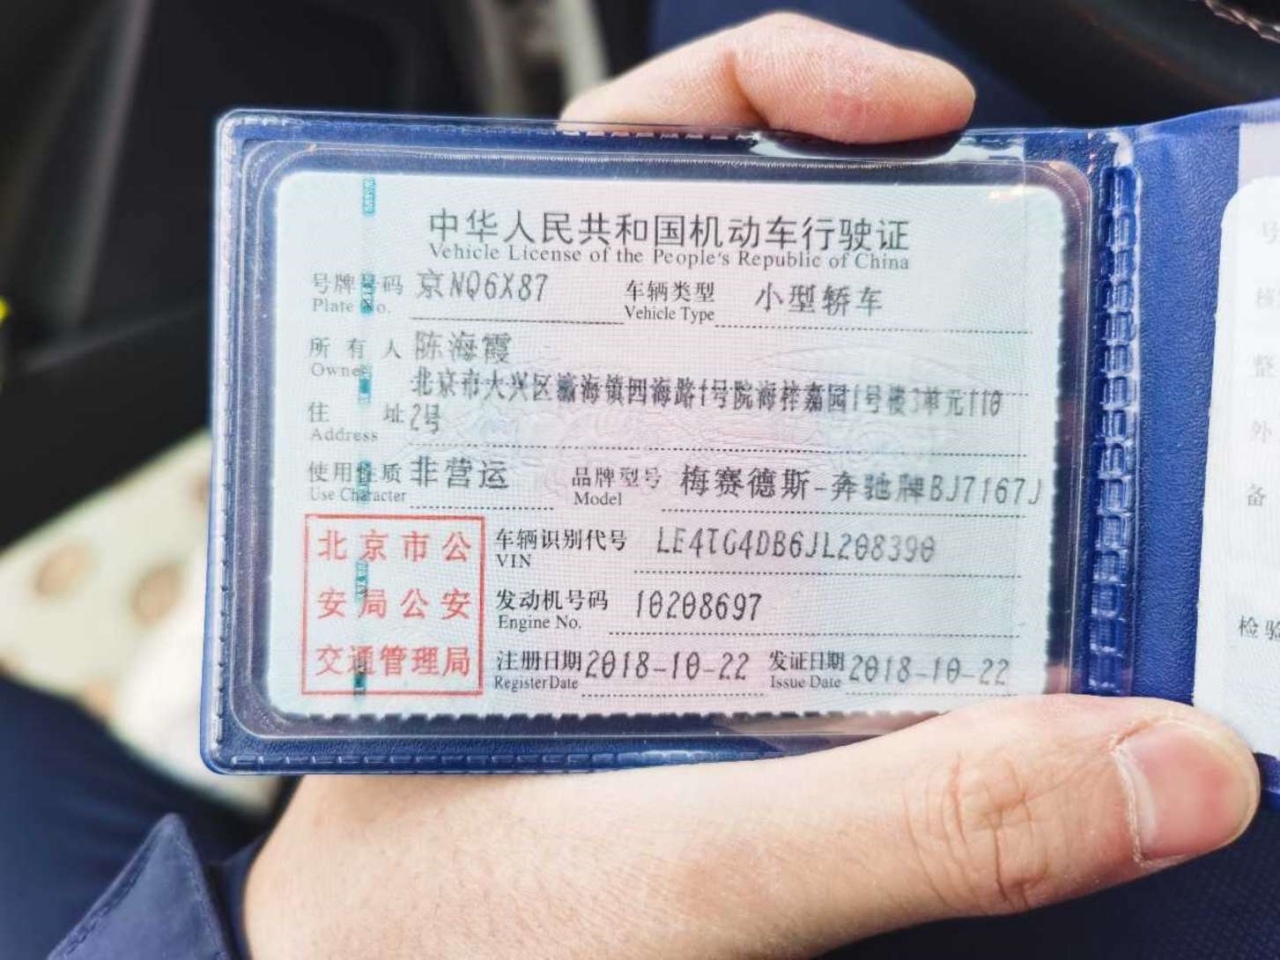 中华人民共和国机动车行驶证
Vehicle License of the People's Republic of China
号牌号码 京NQ6X87 车辆类型 小型轿车
Plate No. Vehicle Type
所有人 陈海霞
Owner
北京市大兴区瀛海镇四海路1号院海梓嘉园1号楼3单元110
住址 2号
Address
使用性质 非营运 品牌型号 梅赛德斯-奔驰牌BJ7167J
Use Character Model
北京市公 车辆识别代号 LE4TG4DB6JL208390
VIN
安局公安 发动机号码 10208697
Engine No.
交通管理局 注册日期 2018-10-22 发证日期 2018-10-22
Register Date Issue Date
号
核
整
外
备
检验